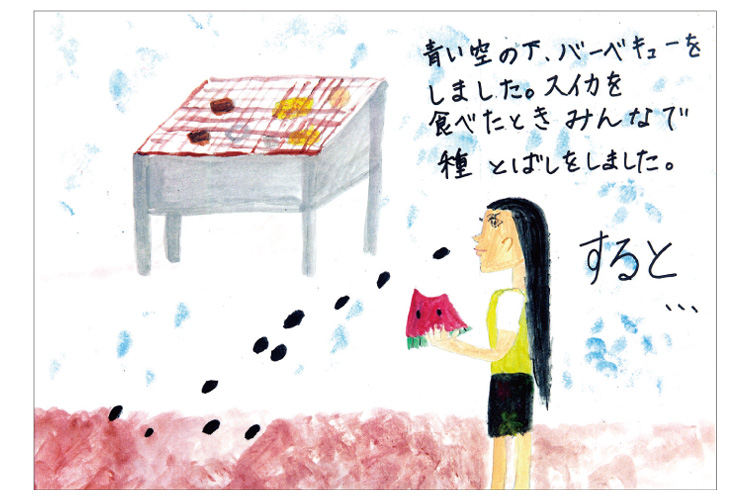 青い空の下、バーベキューを
しました。スイカを
食べたときみんなで
種とばしをしました。
すると
...